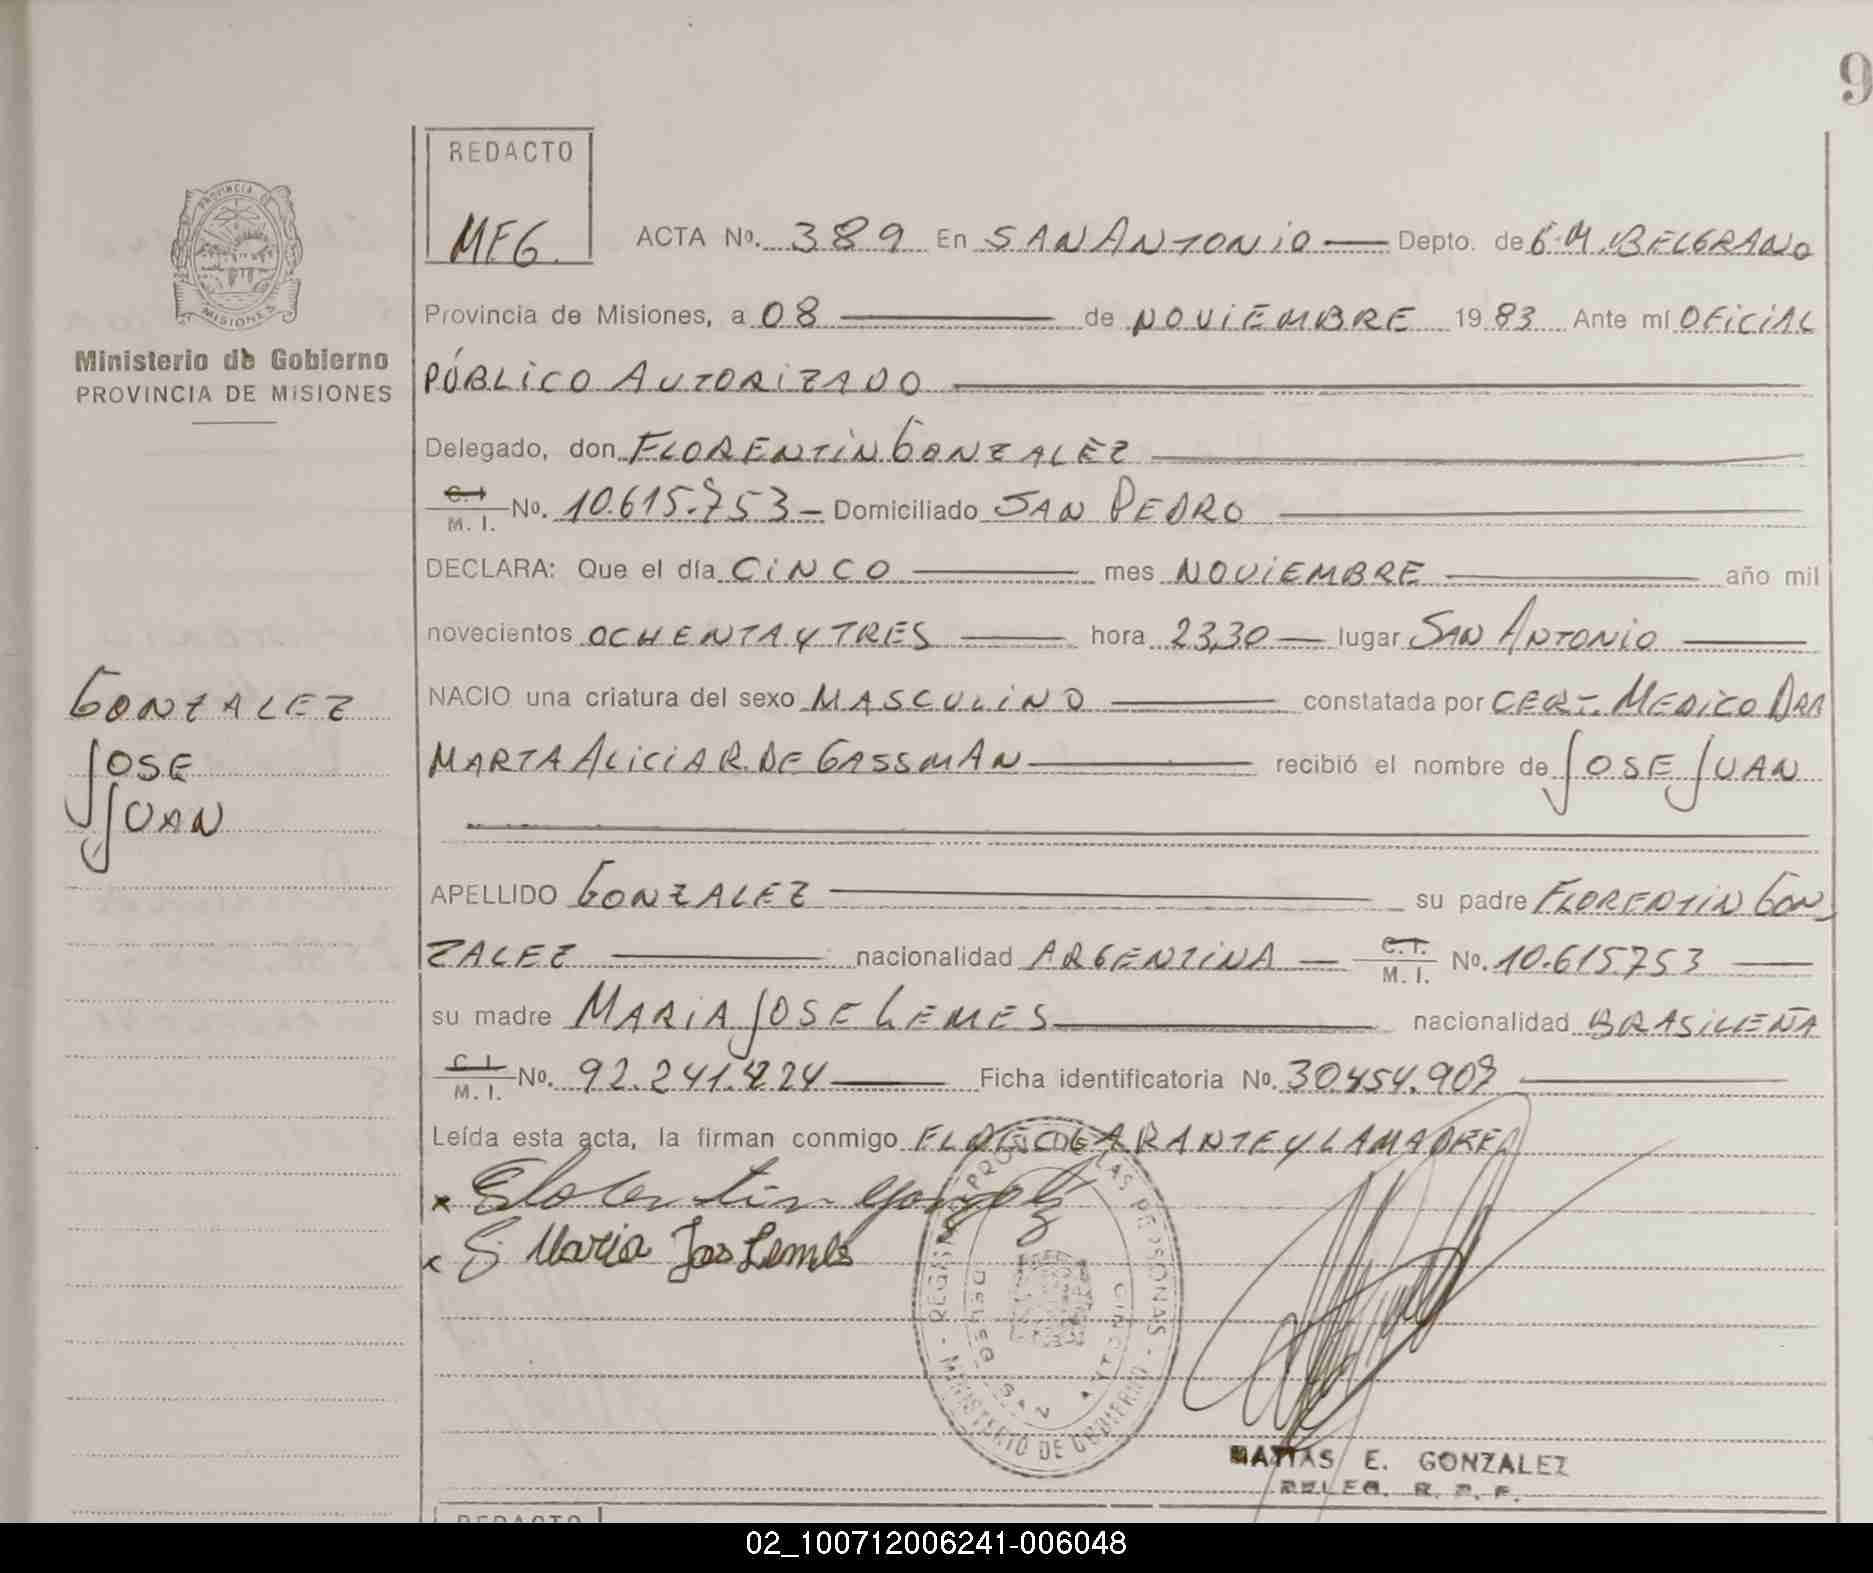 9
REDACTO
MFG.
ACTA Nº. 389 En SAN ANTONIO — Depto. de G.M. BELGRANO
PROVINCIA DE
MISIONES
Provincia de Misiones, a 08 — de NOVIEMBRE 1983 Ante mí OFICIAL
Ministerio de Gobierno
PROVINCIA DE MISIONES
PÚBLICO AUTORIZADO
Delegado, don FLORENTIN GONZALEZ
C. I.
M. I. No. 10.615.753 — Domiciliado SAN PEDRO
DECLARA: Que el día CINCO — mes NOVIEMBRE — año mil
novecientos OCHENTA Y TRES — hora 23,30 — lugar SAN ANTONIO
GONZALEZ
JOSE
JUAN
NACIO una criatura del sexo MASCULINO — constatada por CERT. MEDICO DRA
MARTA ALICIA R. DE GASSMAN — recibió el nombre de JOSE JUAN
APELLIDO GONZALEZ — su padre FLORENTIN GON
ZALEZ — nacionalidad ARGENTINA — C. I. M. I. No. 10.615753
su madre MARIA JOSE LEMES — nacionalidad BRASILEÑA
C. I.
M. I. No. 92.241.224 — Ficha identificatoria No. 30.454.907
Leída esta acta, la firman conmigo EL DECLARANTE Y LA MADRE
x Florentin Gonzalez
x Maria Jos Lemes
REGIST. PROV. DE LAS PERSONAS - MINISTERIO DE GOBIERNO -
MATIAS E. GONZALEZ
DELEG. R. P. P.
REDACTO
02_100712006241-006048